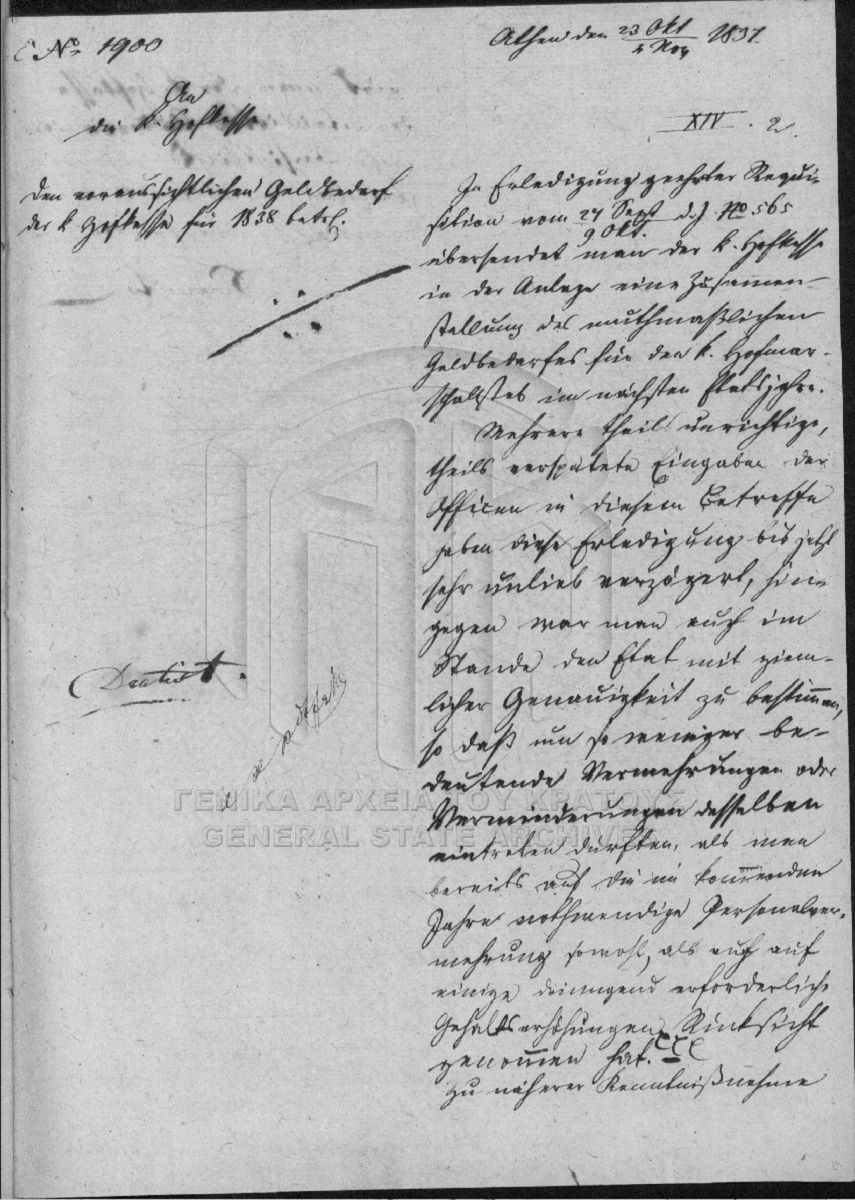 E No 1900
Athen den 23 Okt / 4 Nov 1837
An
die K. Hofkasse
XIV. 2.
den voraussichtlichen Geldbedarf
der k Hofkasse für 1838 betr.
In Erledigung geehrter Requi-
sition vom 27 Sept / 9 Okt. d. J. No 565
übersendet man der k. Hofkasse
in der Anlage eine Zusamen-
stellung des muthmaßlichen
Geldbedarfes für den k. Hofmar-
schallstab im nächsten Etatsjahre.
Mehrere theils unrichtige,
theils verspätete Eingaben der
Officen in diesem Betreffe
haben diese Erledigung bis jetzt
sehr unlieb verzögert, hin-
gegen war man auch im
Stande den Etat mit ziem-
licher Genauigkeit zu bestimmen,
so daß um so weniger be-
deutende Vermehrungen oder
Verminderungen desselben
eintreten dürften, als man
bereits auf die im kommenden
Jahre nothwendige Personalver-
mehrung sowohl, als auch auf
einige dringend erforderliche
Gehaltserhöhungen Rücksicht
genommen hat.
Zu näherer Kenntnißnahme
ΓΕΝΙΚΑ ΑΡΧΕΙΑ ΤΟΥ ΚΡΑΤΟΥΣ
GENERAL STATE ARCHIVES